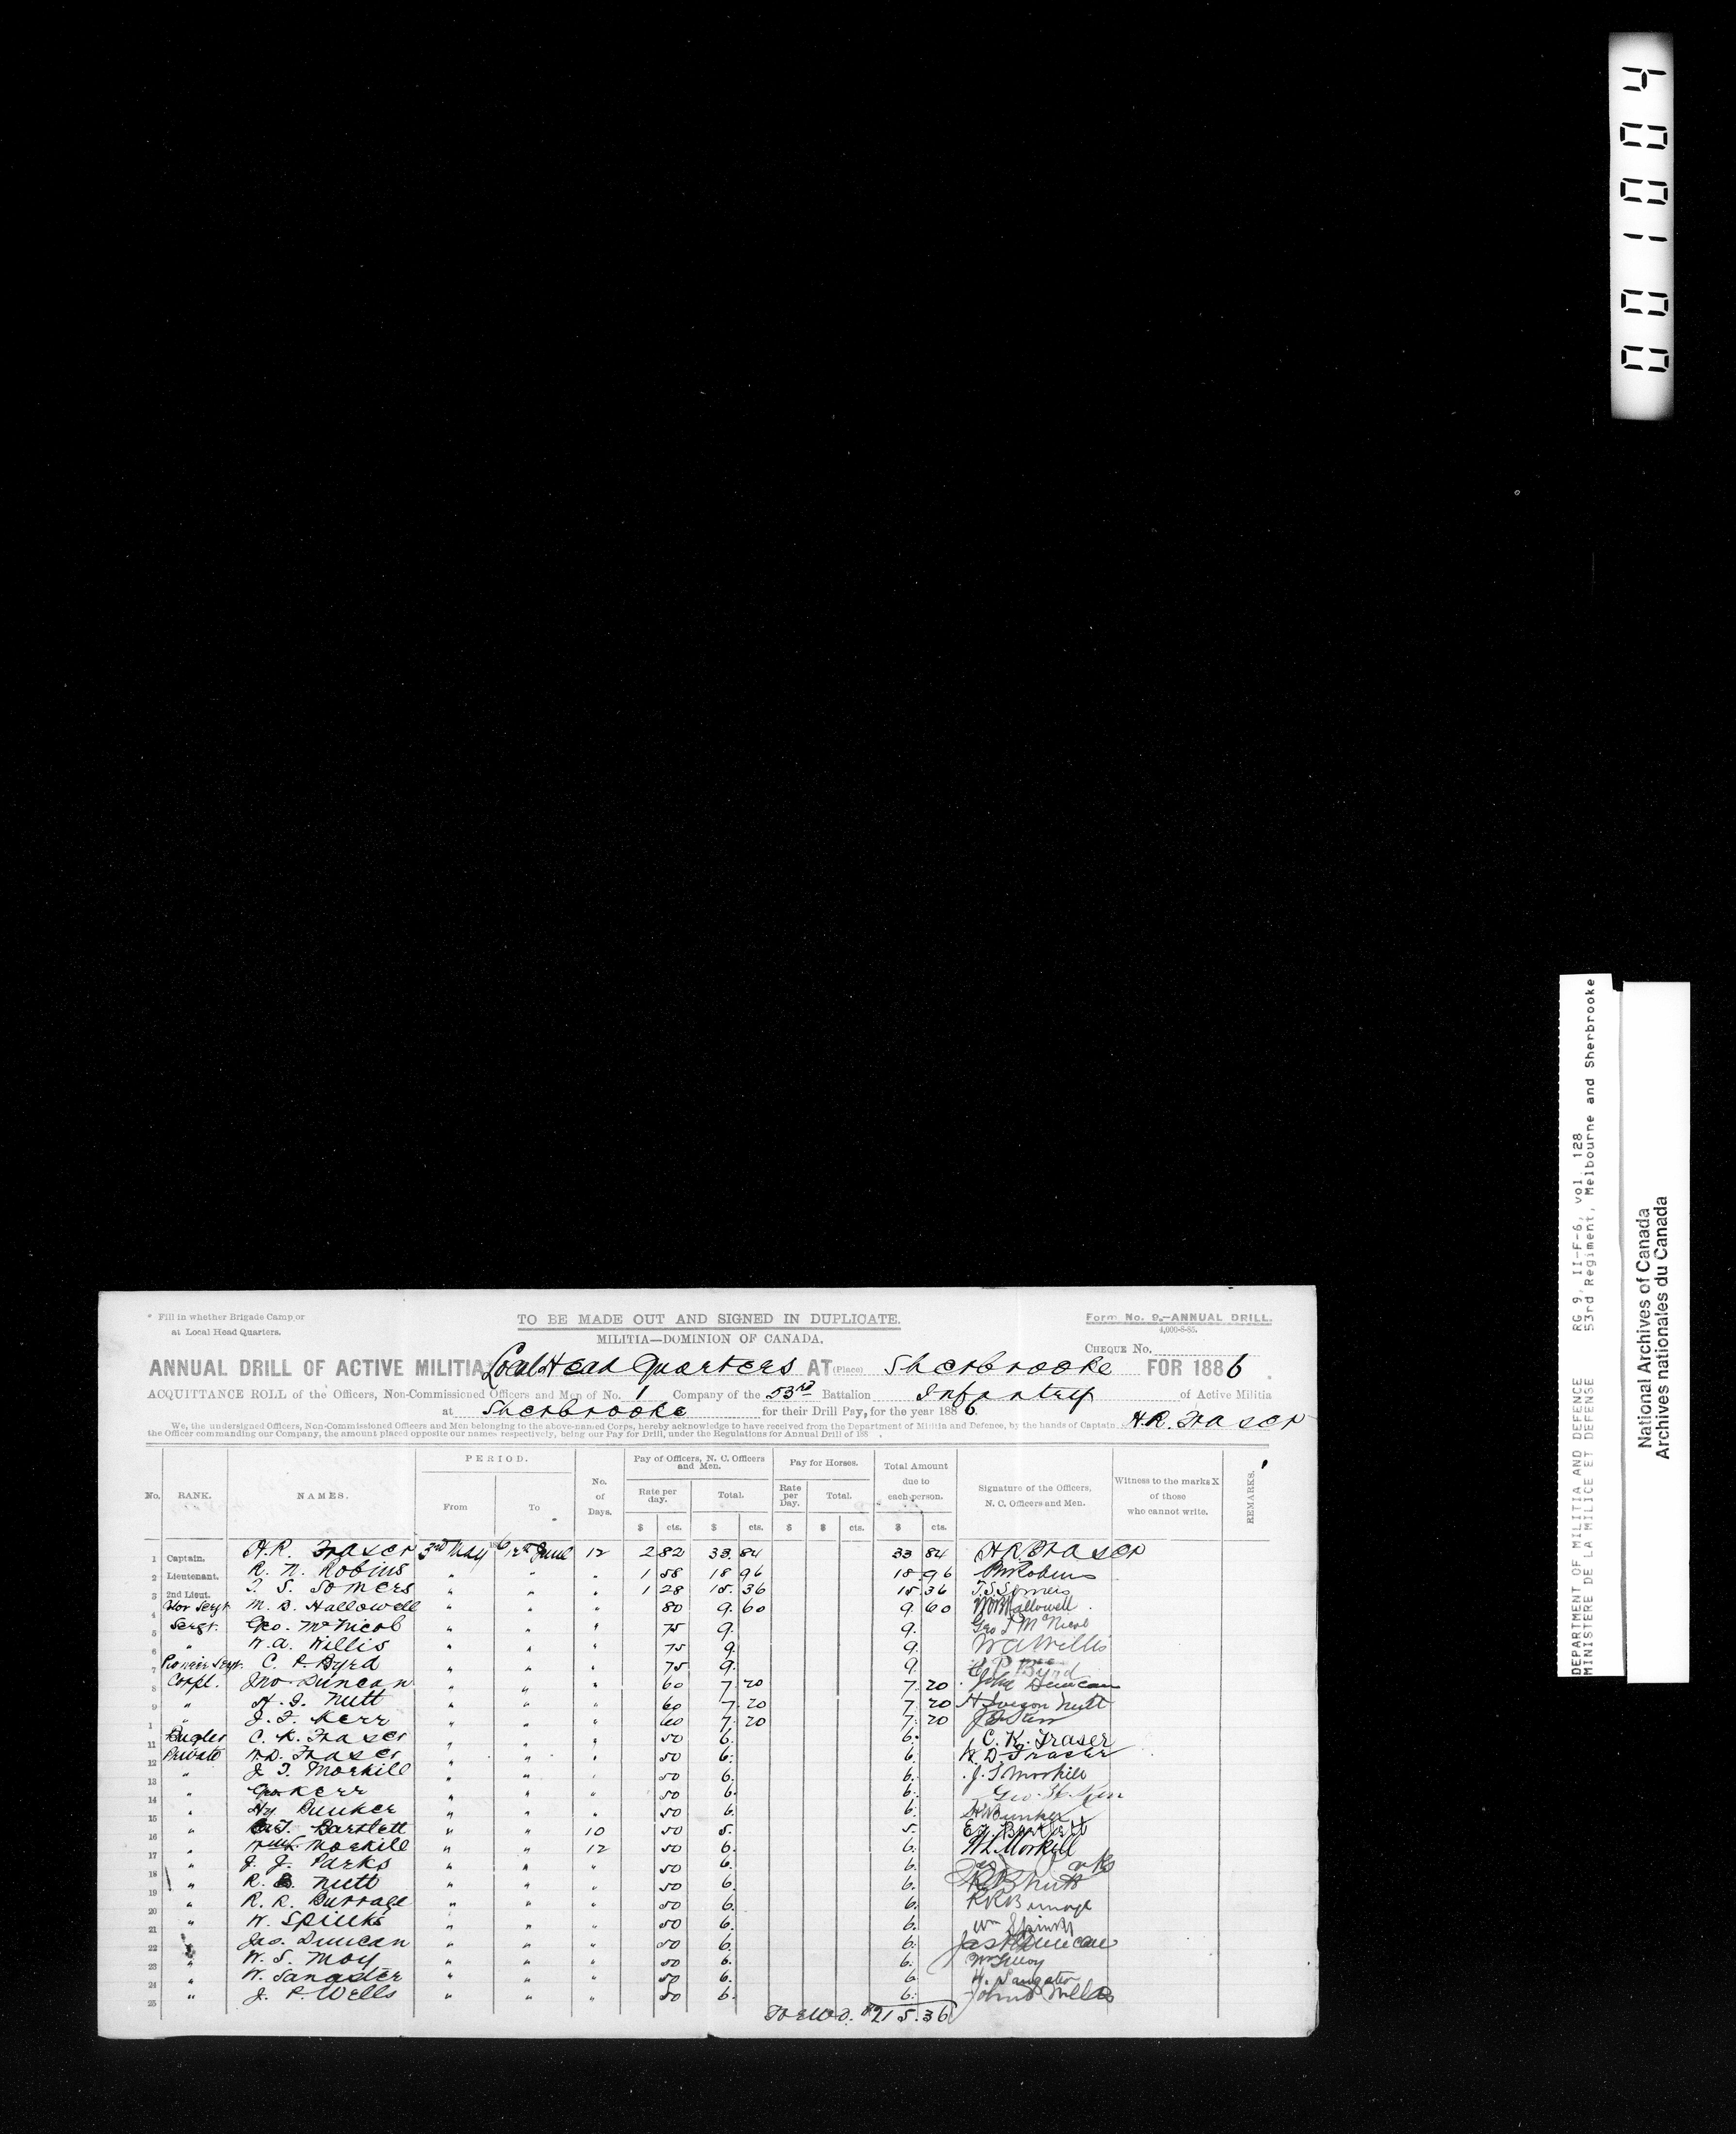 001004
* Fill in whether Brigade Camp or
at Local Head Quarters.
TO BE MADE OUT AND SIGNED IN DUPLICATE.
MILITIA—DOMINION OF CANADA.
Form No. 9.—ANNUAL DRILL.
4,000-8-85.
CHEQUE No.
ANNUAL DRILL OF ACTIVE MILITIA Local Head Quarters AT (Place) Sherbrooke FOR 1886.
ACQUITTANCE ROLL of the Officers, Non-Commissioned Officers and Men of No. 1 Company of the 53rd Battalion Infantry of Active Militia
at Sherbrooke for their Drill Pay, for the year 1886
We, the undersigned Officers, Non-Commissioned Officers and Men belonging to the above-named Corps, hereby acknowledge to have received from the Department of Militia and Defence, by the hands of Captain H.R. Fraser
the Officer commanding our Company, the amount placed opposite our names respectively, being our Pay for Drill, under the Regulations for Annual Drill of 188 .
No. RANK. NAMES. PERIOD. From To No. of Days. Pay of Officers, N. C. Officers and Men. Rate per day. $ cts. Total. $ cts. Pay for Horses. Rate per Day. $ Total. $ cts. Total Amount due to each person. $ cts. Signature of the Officers, N. C. Officers and Men. Witness to the marks X of those who cannot write. REMARKS.
1 Captain. H.R. Fraser 3rd May 12th June 12 2 82 33 84 33 84 H R Fraser
2 Lieutenant. R. N. Robins " " " 1 58 18 96 18 96 Robins
3 2nd Lieut. T. S. Somers " " " 1 28 15 36 15 36 T.S. Somers
4 Sergt M. B. Hallowell " " " 80 9 60 9 60 Hallowell
5 Sergt. Geo. McNicol " " " 75 9 9 Geo McNicol
6 " W.A. Willis " " " 75 9 9 W A Willis
7 Pionier Sergt. C. P. Byrd " " " 75 9 9 C P Byrd
8 Corpl. Jno Duncan " " " 60 7 20 7 20 John Duncan
9 " H. I. Nutt " " " 60 7 20 7 20 H Nutt
1 " J. F. Kerr " " " 60 7 20 7 20
11 Bugler C. K. Fraser " " " 50 6 6 C. K. Fraser
12 Private W.D. Fraser " " " 50 6 6 W. D Fraser
13 " J. T. Morkill " " " 50 6 6 J. T Morkill
14 " Geo Kerr " " " 50 6 6 Geo. H. Kerr
15 " Hy Bunker " " " 50 6 6 Bunker
16 " Bartlett " " 10 50 5 5 Bartlett
17 " Morkill " " 12 50 6 6 W L Morkill
18 " J. J. Parks " " " 50 6 6
19 " R. B. Nutt " " " 50 6 6 R B Nutt
20 " R. R. Burrage " " " 50 6 6 R R Burrage
21 " W. Spinks " " " 50 6 6 Wm Spinks
22 " Jas. Duncan " " " 50 6 6 Jas Duncan
23 " W. S. Moy " " " 50 6 6
24 " W. Sangster " " " 50 6 6 W. Sangster
25 " J. P. Wells " " " 50 6 6 John Wells
$215.36
DEPARTMENT OF MILITIA AND DEFENCE RG 9, II-F-6, vol. 128
MINISTERE DE LA MILICE ET DEFENSE 53rd Regiment, Melbourne and Sherbrooke
National Archives of Canada
Archives nationales du Canada